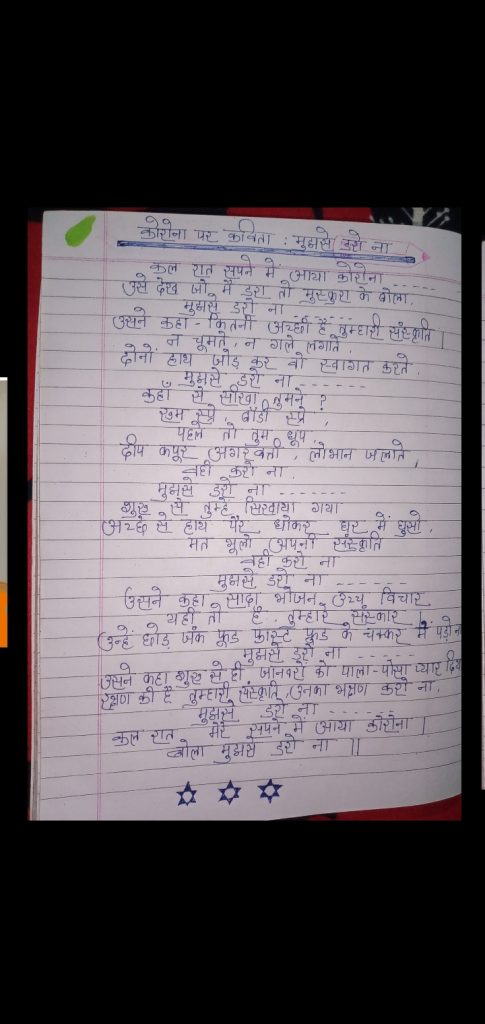 कोरोना पर कविता : मुझसे डरो ना
कल रात सपने में आया कोरोना - - - - -
उसे देख जो मैं डरा तो मुस्कुरा के बोला,
मुझसे डरो ना - - - - - -
उसने कहा - कितनी अच्छी है तुम्हारी संस्कृति |
न चूमते, न गले लगाते,
दोनों हाथ जोड़ कर वो स्वागत करते,
मुझसे डरो ना - - - - - -
कहाँ से सीखा तुमने ?
रूम स्प्रे, बॉडी स्प्रे,
पहले तो तुम धूप,
दीप कपूर अगरबत्ती, लोभान जलाते,
वही करो ना,
मुझसे डरो ना - - - - - - -
शुरु से तुम्हें सिखाया गया
अच्छे से हाथ पैर धोकर घर में घुसो,
मत भूलो अपनी संस्कृति
वही करो ना
मुझसे डरो ना - - - - - -
उसने कहा सादा भोजन उच्च विचार
यही तो है तुम्हारे संस्कार |
उन्हें छोड़ जंक फूड फास्ट फूड के चक्कर में पड़ो न
मुझसे डरो ना - - - - - -
उसने कहा शुरु से ही जानवरों को पाला-पोसा प्यार दिय
रक्षण की है तुम्हारी संस्कृति, उनका भक्षण करो ना,
मुझसे डरो ना - - - - - -
कल रात मेरे सपने में आया कोरोना |
बोला मुझसे डरो ना ||